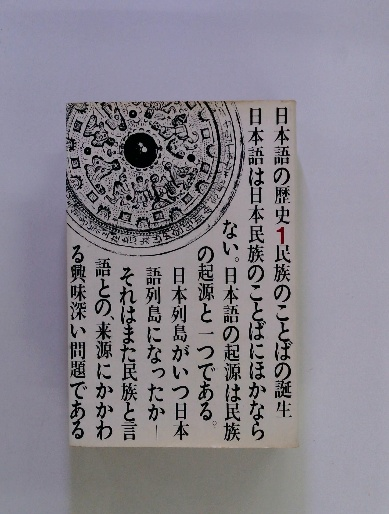 日本語の歴史1民族のことばの誕生
日本語は日本民族のことばにほかなら
ない。日本語の起源は民族
の起源と一つである。
日本列島がいつ日本
語列島になったか—
それはまた民族と言
語との、来源にかかわ
る興味深い問題である